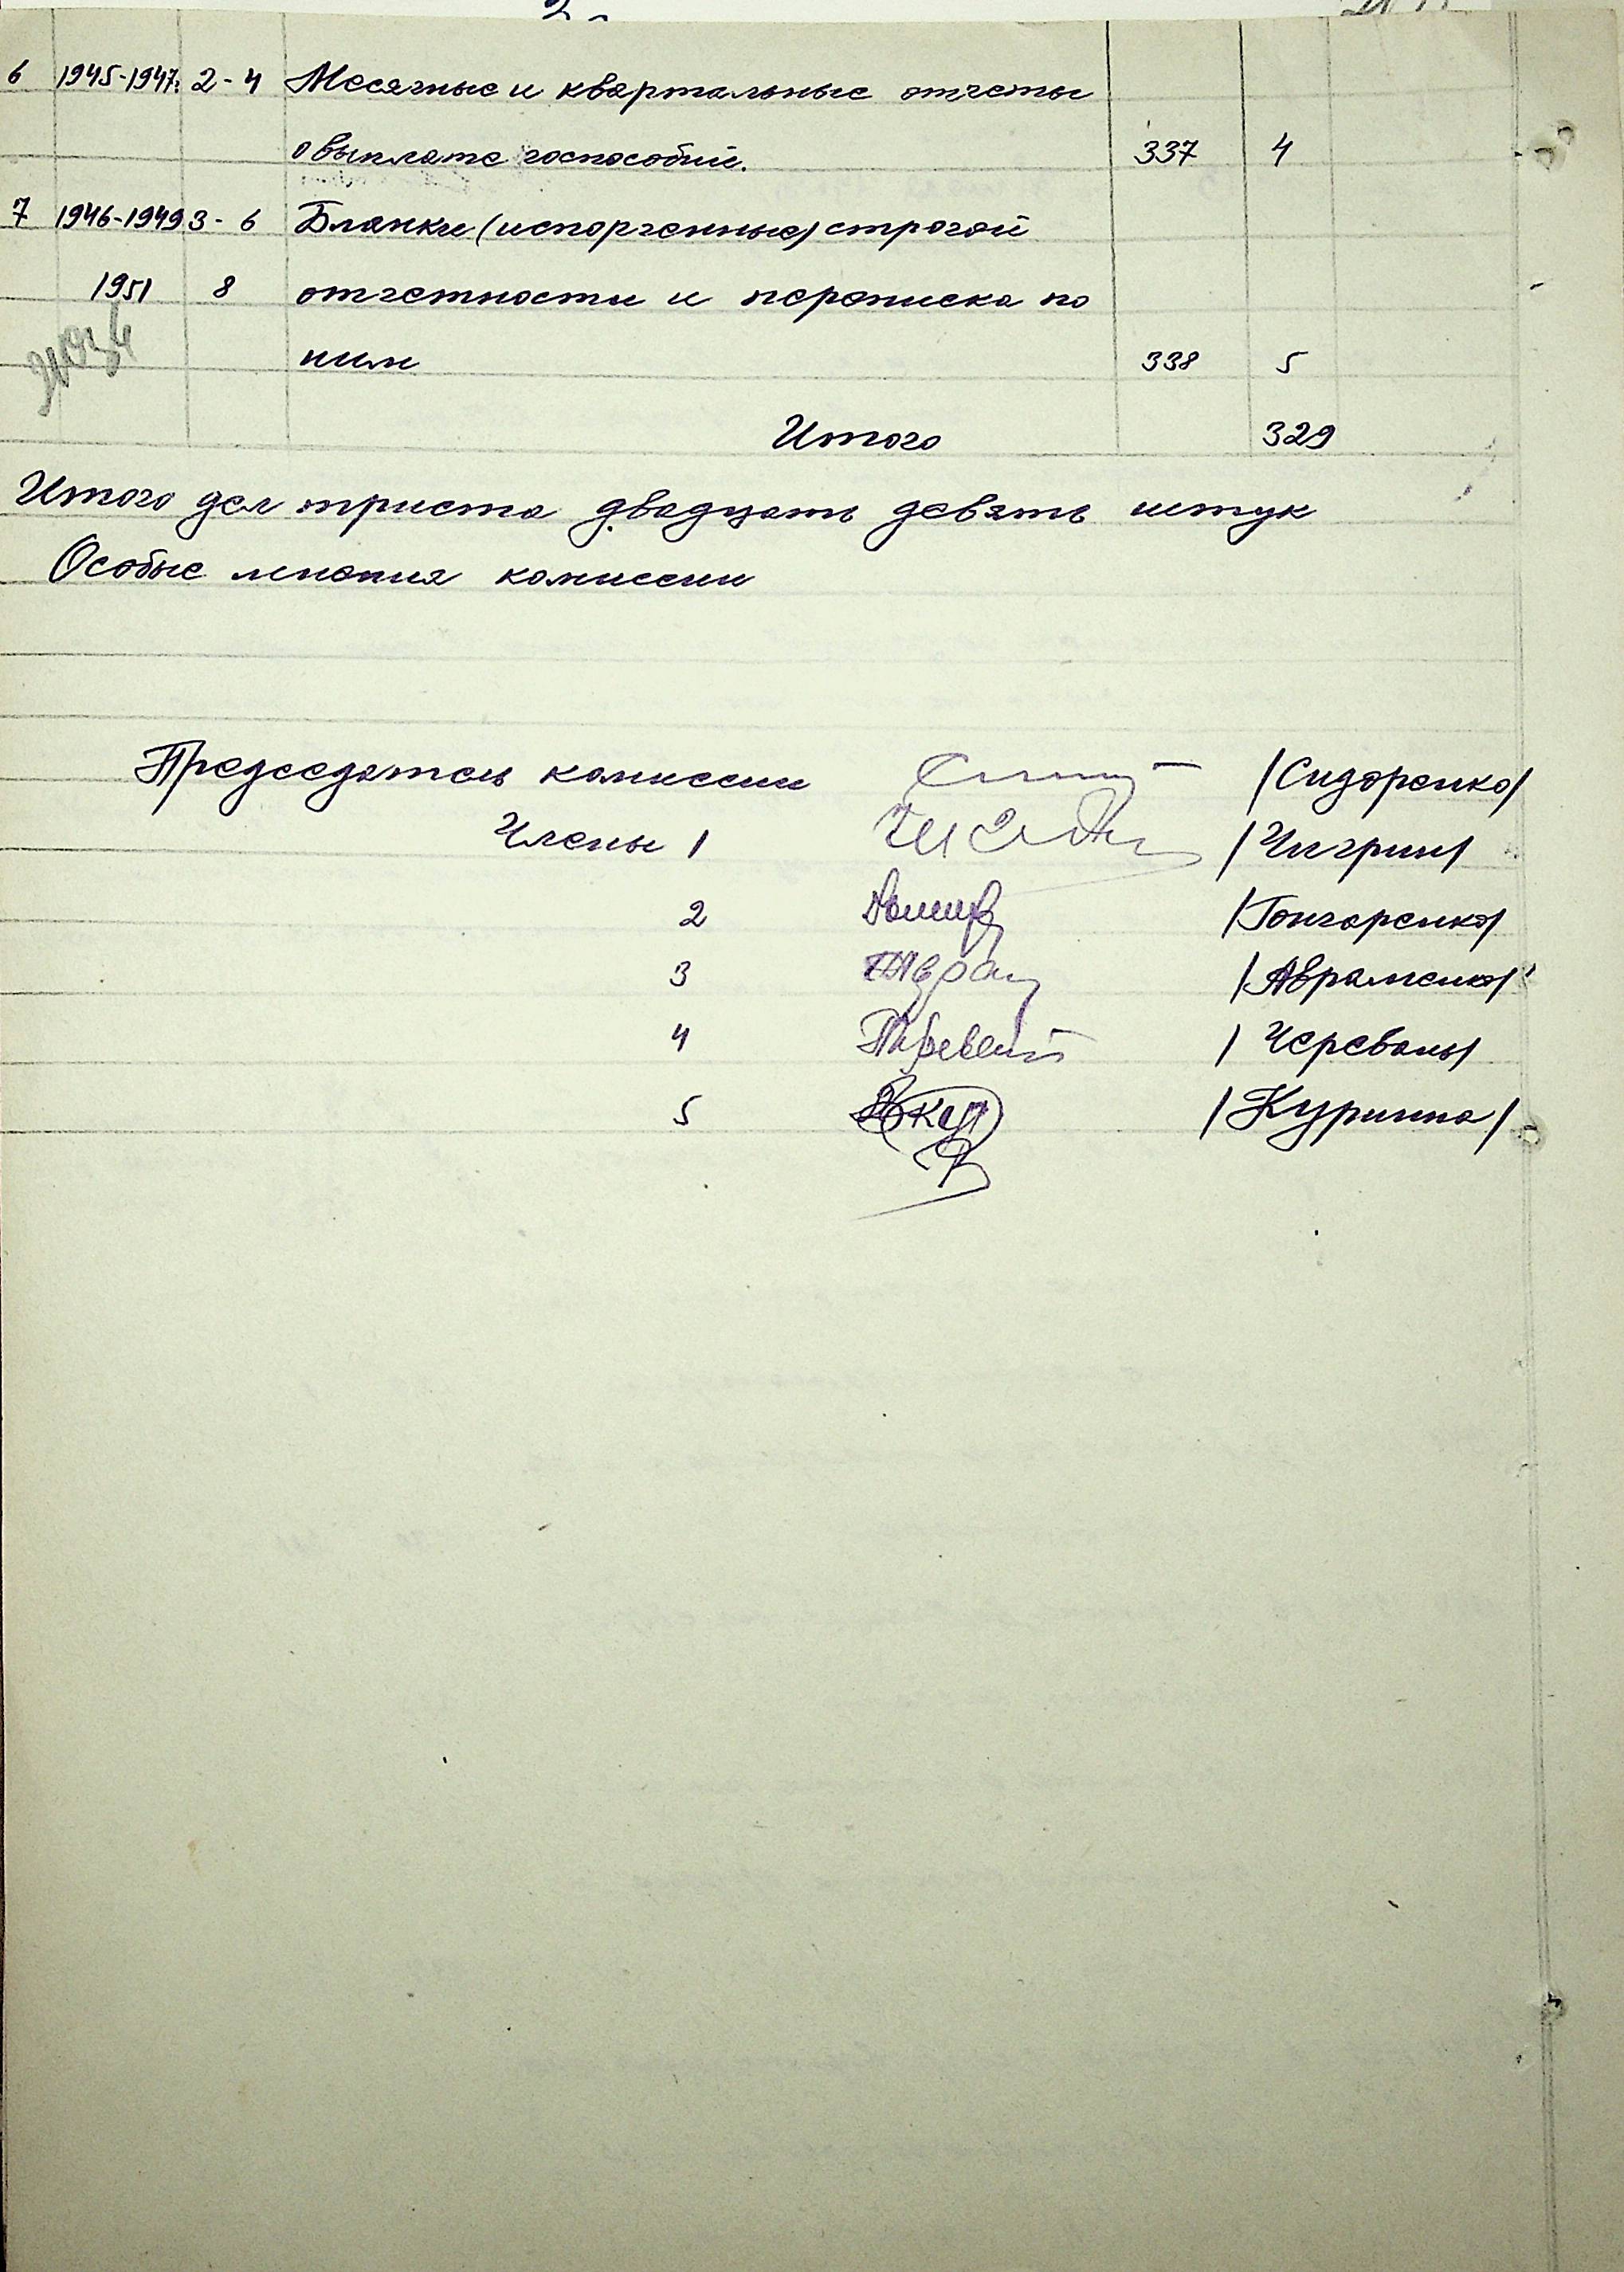 6 1945-1947г. 2-4 Месячные и квартальные отчеты
о выплате госпособий. 337 4
7 1946-1949 3-6 Бланки (испорченные) строгой
1951 8 отчетности и переписка по
ним 338 5
Итого 329
Итого дел триста двадцать девять штук
Особые мнения комиссии
Председатель комиссии /Сидоренко/
Члены 1 /Чигрин/
2 /Гончаренко/
3 /Авраменко/
4 /Череваны/
5 /Куринна/